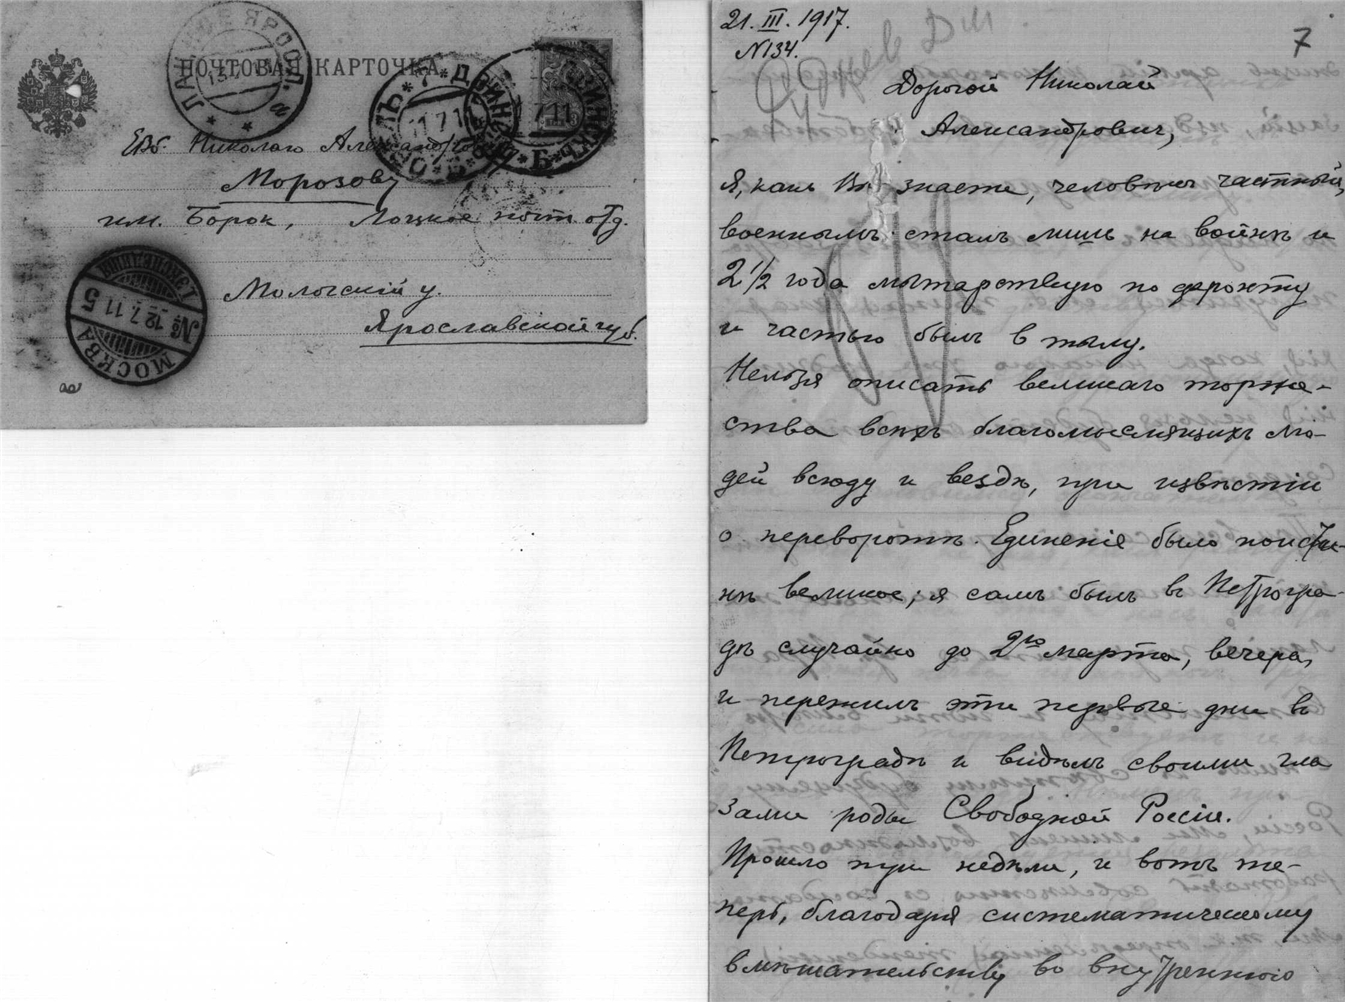 ПОЧТОВАЯ КАРТОЧКА
Евб Николаю Александров
Морозову
им. Борок, почт. отд.
Мологскій у.
Ярославской губ.
МОСКВА
12.7.11 5
21.III.1917.
№134.
7
Дорогой Николай
Александрович,
Я, какъ Вы знаете, человѣкъ частный,
военнымъ сталъ лишь на войнѣ и
2½ года мытарствую по фронту
и частью былъ в тылу.
Нельзя описать великаго торже-
ства всѣхъ благомыслящихъ лю-
дей всюду и вездѣ, при извѣстіи
о переворотѣ. Единеніе было поисти-
нѣ великое; я самъ былъ въ Петрогра-
дѣ случайно до 2го марта, вечера,
и пережилъ эти первые дни въ
Петроградѣ и видѣлъ своими гла
зами роды Свободной Россіи.
Прошло три недѣли, и вотъ те-
перь, благодаря систематическому
вмѣшательству во внутреннюю